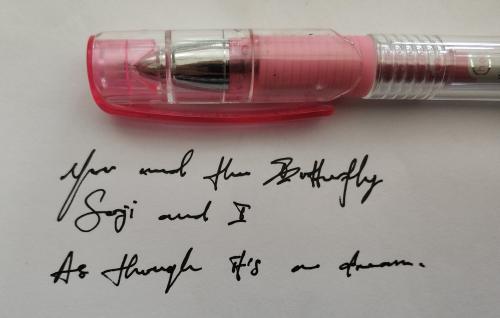 You and the Butterfly
Soji and I
As though it's a dream.